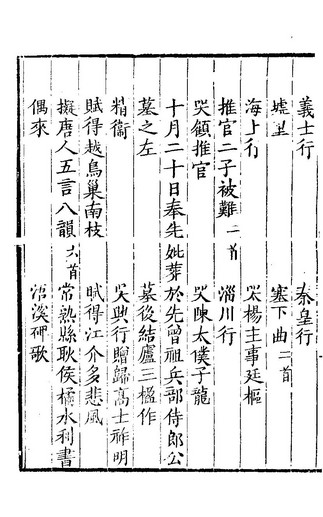 義士行　秦皇行
墟里　塞下曲二首
海上行　哭楊主事廷樞
推官二子被難二首　淄川行
哭顧推官　哭陳太僕子龍
十月二十日奉先妣葬於先曾祖兵部侍郎公
墓之左　墓後結廬三楹作
精衛　吳興行贈歸高士祚明
賦得越鳥巢南枝　賦得江介多悲風
擬唐人五言八韻六首　常熟縣耿侯橘水利書
偶來　浯溪碑歌